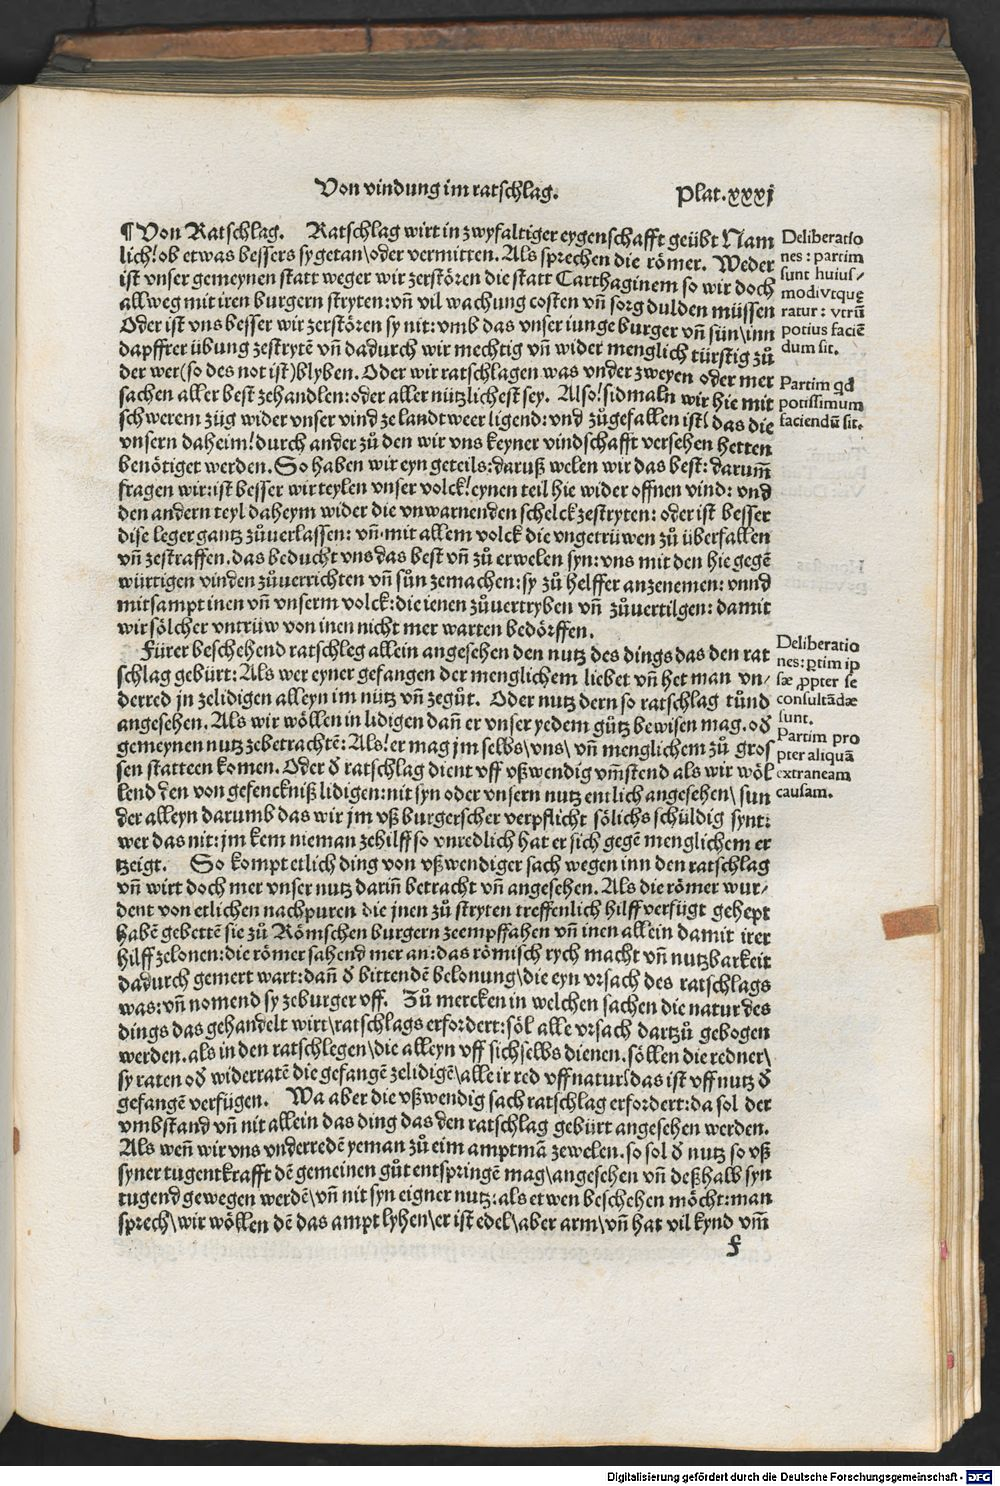 Von vindung im ratschlag.
Plat. xxxj
¶ Von Ratschlag. Ratschlag wirt in zwyfaltiger eygenschafft geübt Nam
lich! ob etwas bessers sy getan\ oder vermitten. Als sprechen die römer. Weder
ist vnser gemeynen statt weger wir zerstören die statt Carthaginem so wir doch
allweg mit iren burgern stryten: vñ vil wachung costen vñ sorg dulden müssen
Oder ist vns besser wir zerstören sy nit: vmb das vnser iunge burger vñ sün\ inn
dapffrer übung zestrytē vñ dadurch wir mechtig vñ wider menglich türstig zů
der wer (so des not ist) blyben. Oder wir ratschlagen was vnder zweyen oder mer
sachen aller best zehandlen: oder aller nützlichest sey. Also! sidmaln wir hie mit
schwerem züg wider vnser vind ze landtweer ligend: vnd zůgefallen ist! das die
vnsern daheim! durch ander zů den wir vns keyner vindschafft versehen hetten
benötiget werden. So haben wir eyn geteils: daruß welen wir das best: darum̃
fragen wir: ist besser wir teylen vnser volck! eynen teil hie wider offnen vind: vnd
den andern teyl daheym wider die vnwarnenden schelck zestryten: oder ist besser
dise leger gantz zůverlassen: vñ mit allem volck die vngetrüwen zů überfallen
vñ zestraffen. das beducht vns das best vñ zů erwelen syn: vns mit den hie gegē
würtigen vinden zůverrichten vñ sün zemachen: sy zů helffer anzenemen: vnnd
mitsampt inen vñ vnserm volck: die ienen zůvertryben vñ zůvertilgen: damit
wir sölcher vntrüw von inen nicht mer warten bedörffen.
Fürer beschehend ratschleg allein angesehen den nutz des dings das den rat
schlag gebürt: Als wer eyner gefangen der menglichem liebet vñ het man vn/
derred jn zelidigen alleyn im nütz vñ zegůt. Oder nutz dern so ratschlag tůnd
angesehen. Als wir wöllen in lidigen dañ er vnser yedem gůtz bewisen mag. od̄
gemeynen nutz zebetrachtē: Als! er mag jm selbs\ vns\ vñ menglichem zů gros
sen statten komen. Oder d̄ ratschlag dient vff vßwendig vm̃stend als wir wöl
lend den von gefenckniß lidigen: nit syn oder vnsern nutz entlich angesehen\ sun
der alleyn darumb das wir jm vß burgerscher verpflicht sölichs schüldig synt:
wer das nit: jm kem nieman zehilff so vnredlich hat er sich gegē menglichem er
tzeigt. So kompt etlich ding von vßwendiger sach wegen inn den ratschlag
vñ wirt doch mer vnser nutz dariñ betracht vñ angesehen. Als die römer wur/
dent von etlichen nachpuren die jnen zů stryten treffenlich hilff verfügt gehept
habē gebettē sie zů Römschen burgern zeempfahen vñ inen allein damit irer
hilff zelonen: die römer sahend mer an: das römisch rych macht vñ nutzbarkeit
dadurch gemert wart: dañ d̄ bittendē belonung\ die eyn vrsach des ratschlags
was: vñ nomend sy zeburger vff. Zů mercken in welchen sachen die natur des
dings das gehandelt wirt\ ratschlags erfordert: söl alle vrsach dartzů gebogen
werden. als in den ratschlegen\ die alleyn vff sichselbs dienen. söllen die redner\
sy raten od̄ widerratē die gefangē zelidigē\ alle ir red vff natur! das ist vff nutz d̄
gefangē verfügen. Wa aber die vßwendig sach ratschlag erfordert: da sol der
vmbstand vñ nit allein das ding das den ratschlag gebürt angesehen werden.
Als weñ wir vns vnderredē yeman zů eim amptmā zewelen. so sol d̄ nutz so vß
syner tugentkrafft dē gemeinen gůt entspringē mag\ angesehen vñ deßhalb syn
tugend gewegen werdē\ vñ nit syn eigner nutz: als etwen beschehen möcht: man
sprech\ wir wöllen dē das ampt lyhen\ er ist edel\ aber arm\ vñ hat vil kynd vm̃
f
Deliberatio
nes: partim
sunt huius/
modi vt quę
ratur: vtrū
potius faciē
dum sit.
Partim qd
potissimum
faciendū sit.
Deliberatio
nes: ꝑtim ip
sæ ꝓpter se
consultādæ
sunt.
Partim pro
pter aliquā
extraneam
causam.
Digitalisierung gefördert durch die Deutsche Forschungsgemeinschaft - DFG